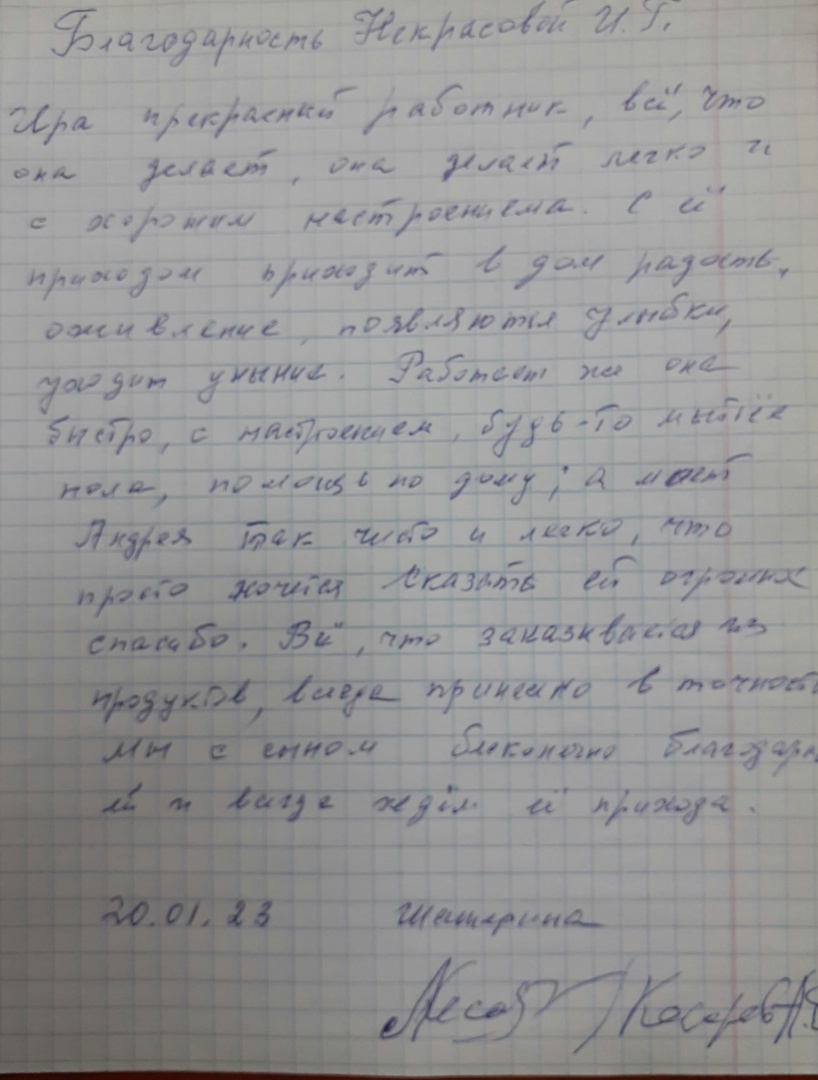 Благодарность Некрасовой И.Г.
Ира прекрасный работник, всё, что
она делает, она делает легко и
с хорошим настроениема. С её
приходом приходит в дом радость,
оживление, появляются улыбки,
уходит уныние. Работает же она
быстро, с настроением, будь-то мытьё
пола, помощь по дому; а моет
Андрея так чисто и легко, что
просто хочется сказать ей огромное
спасибо. Всё, что заказывается из
продуктов, всегда принесено в точности
Мы с сыном бесконечно благодарны
ей и всегда ждём её прихода.
20.01.23